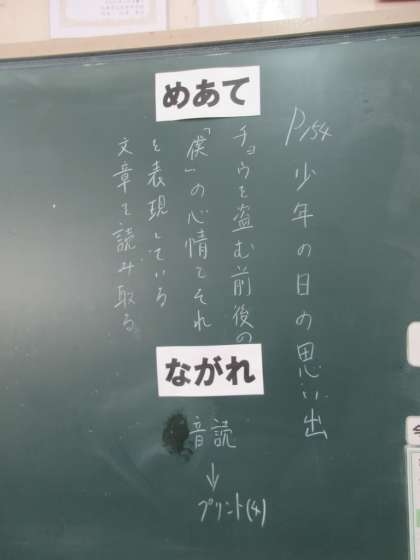 P154 少年の日の思い出
めあて
チョウを盗む前後の
「僕」の心情とそれ
を表現している
文章を読み取る
ながれ
音読
↓
プリント(4)